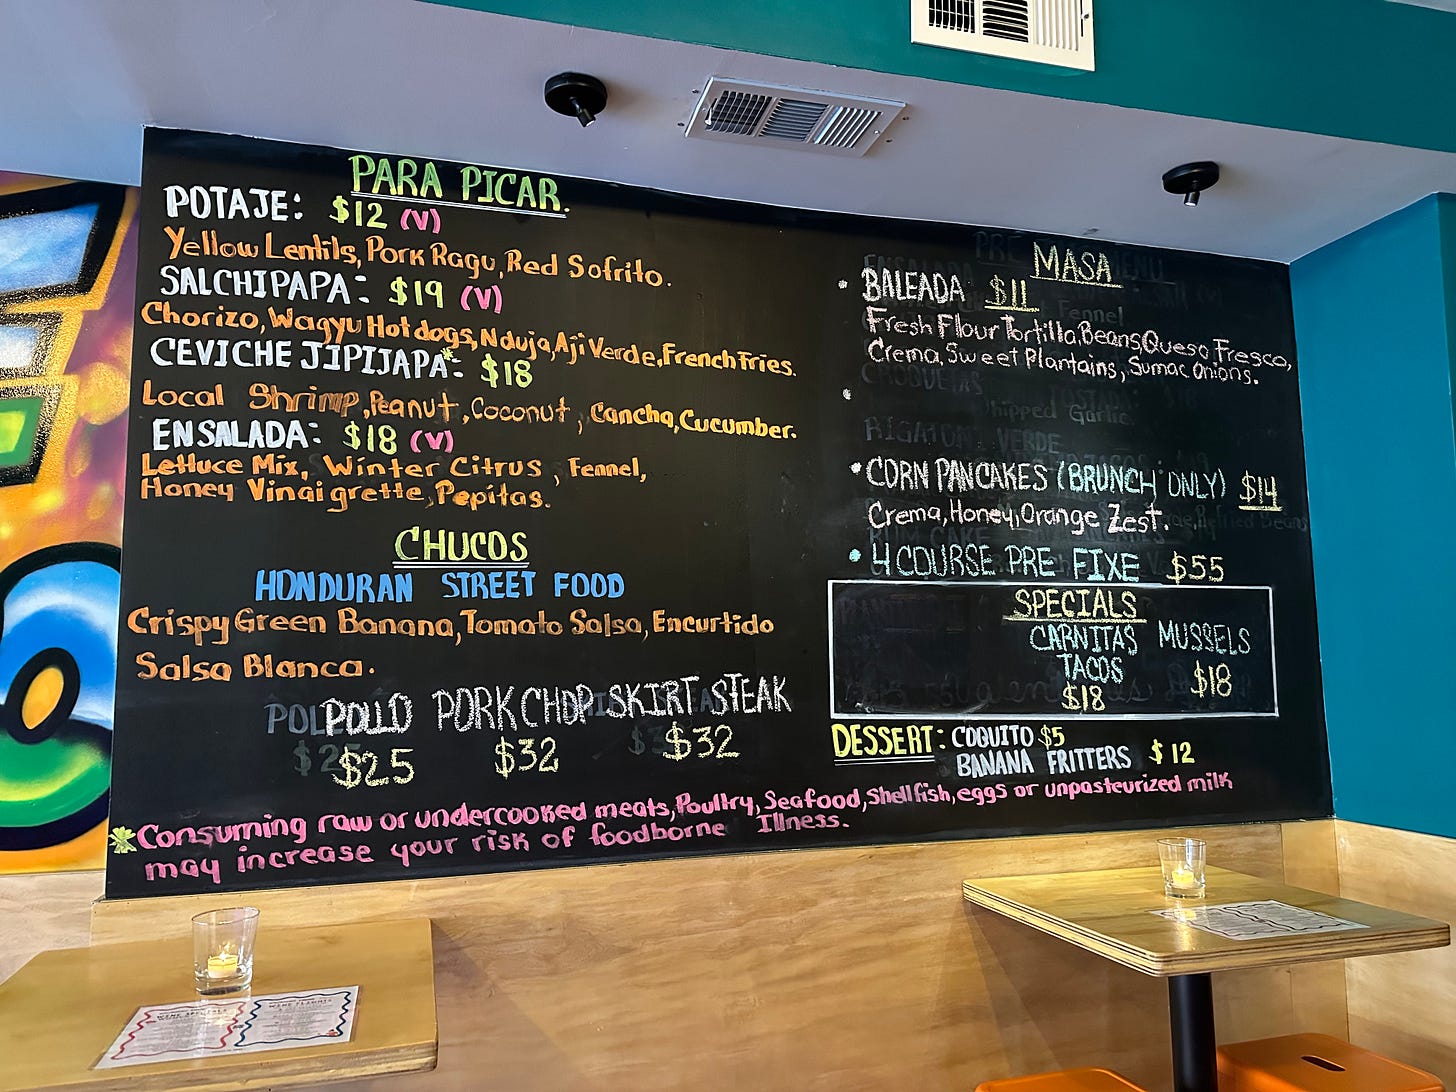 PARA PICAR.
POTAJE: $12 (V)
Yellow Lentils, Pork Ragu, Red Sofrito.
SALCHIPAPA: $19 (V)
Chorizo, Wagyu Hot dogs, Nduja, Aji Verde, French Fries.
CEVICHE JIPIJAPA*: $18
Local Shrimp, Peanut, Coconut, Cancha, Cucumber.
ENSALADA: $18 (V)
Lettuce Mix, Winter Citrus, Fennel,
Honey Vinaigrette, Pepitas.
CHUCOS
HONDURAN STREET FOOD
Crispy Green Banana, Tomato Salsa, Encurtido
Salsa Blanca.
POLLO PORK CHOP SKIRT STEAK
$25 $32 $32
MASA
• BALEADA $11
Fresh Flour Tortilla, Beans, Queso Fresco,
Crema, Sweet Plantains, Sumac Onions.
•
• CORN PANCAKES (BRUNCH ONLY) $14
Crema, Honey, Orange Zest.
• 4 COURSE PRE FIXE $55
SPECIALS
CARNITAS MUSSELS
TACOS
$18 $18
DESSERT: COQUITO $5
BANANA FRITTERS $12
*Consuming raw or undercooked meats, Poultry, Seafood, Shellfish, eggs or unpasteurized milk
may increase your risk of foodborne Illness.